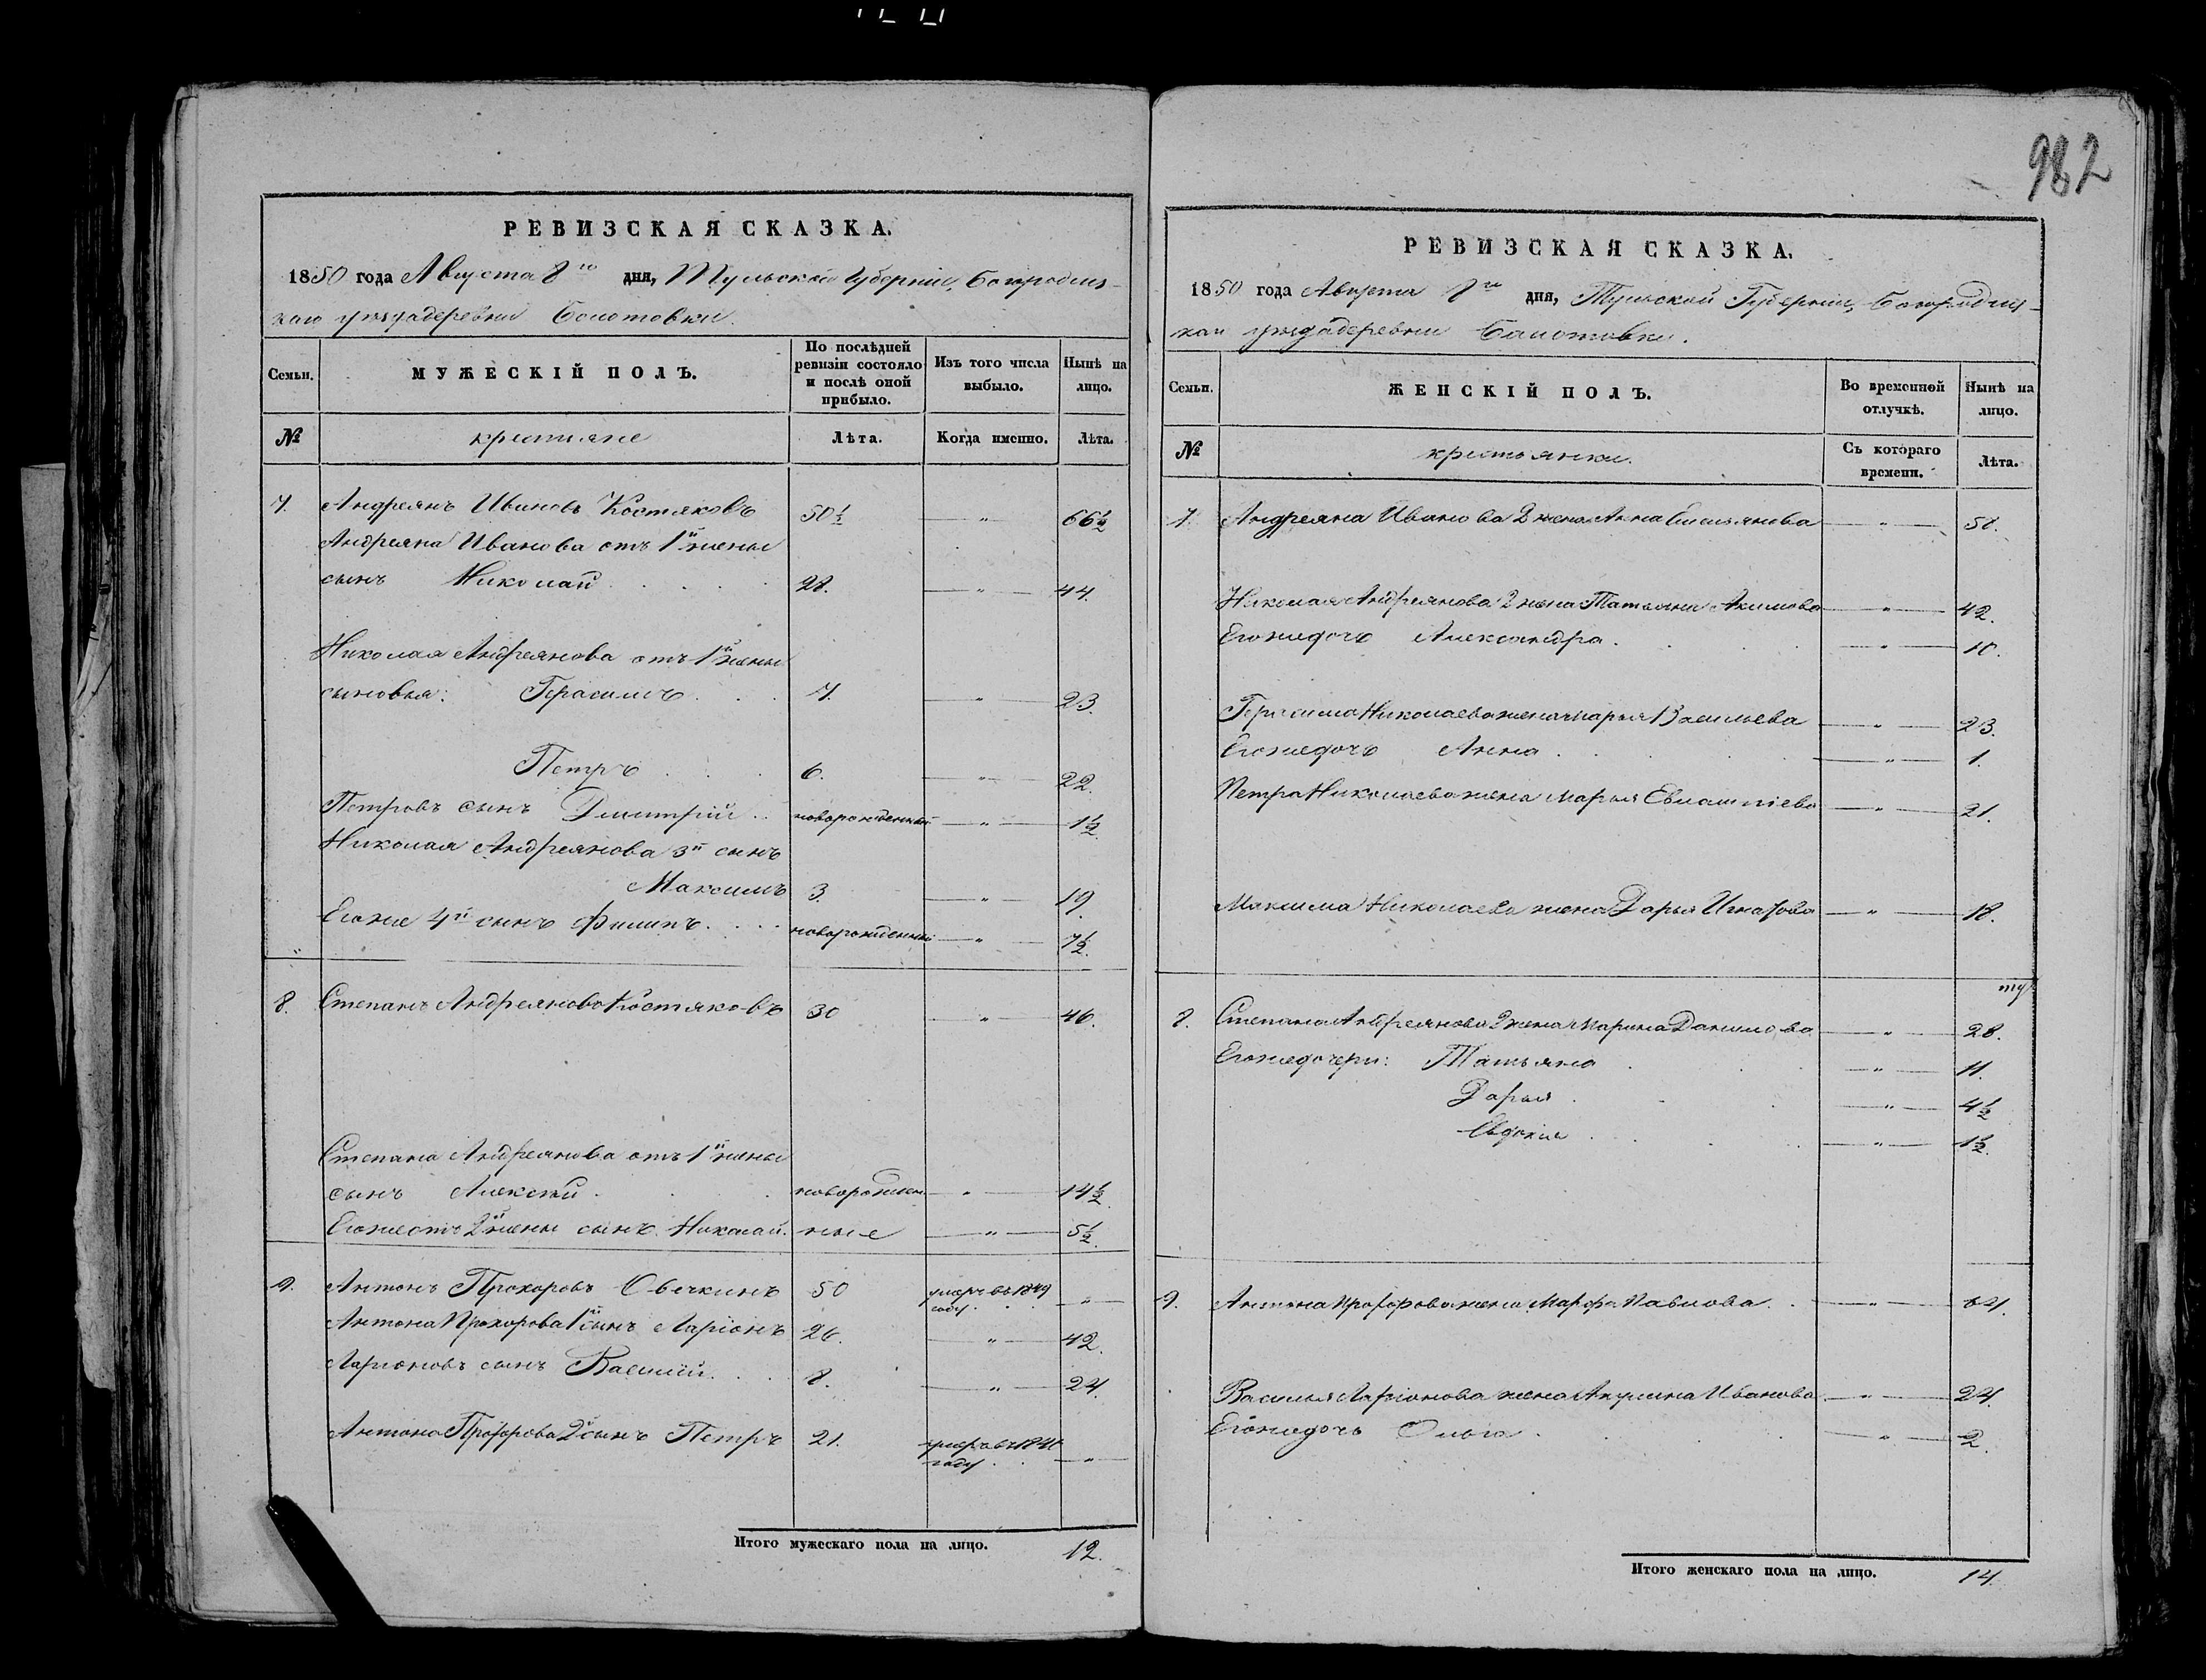 982
РЕВИЗСКАЯ СКАЗКА.
1850 года Августа 8го дня, Тульской Губерніи, Богородиц-
каго уѣзда деревни Болотовки.
Семьи.
МУЖЕСКІЙ ПОЛЪ.
По послѣдней ревизіи состояло и послѣ оной прибыло.
Изъ того числа выбыло.
Нынѣ на лицо.
№ крестьяне Лѣта. Когда именно. Лѣта.
7. Андреянъ Ивановъ Костяковъ 50½ — " — 66½
Андреяна Иванова отъ 1й жены
сынъ Николай . . . . 28. — " — 44.
Николая Андреянова отъ 1й жены
сыновья: Герасимъ . . . 7. — " — 23.
Петръ . . . 6. — " — 22.
Петровъ сынъ Дмитрій . . новорожденный — " — 1½
Николая Андреянова 3й сынъ
Максимъ 3. — " — 19.
Егоже 4й сынъ Филипъ . . . . новорожденный — " — 7½
8. Степанъ Андреяновъ Костяковъ 30 — " — 46.
Степана Андреянова отъ 1й жены
сынъ Алексѣй . . . новорожден — " — 14½
Егоже отъ 2й жены сынъ Николай. ные — " — 5½
9. Антонъ Прохоровъ Овечкинъ 50 умеръ въ 1849 году . . — " —
Антона Прохорова 1й сынъ Ларіонъ 26. — " — 42.
Ларіоновъ сынъ Василій . . . . 8. — " — 24.
Антона Прохорова 2й сынъ Петръ 21. умеръ въ 1846 году . . — " —
Итого мужескаго пола на лицо. 12.
РЕВИЗСКАЯ СКАЗКА.
1850 года Августа 8го дня, Тульской Губерніи, Богородиц-
каго уѣзда деревни Болотовки.
Семьи.
ЖЕНСКІЙ ПОЛЪ.
Во временной отлучкѣ.
Нынѣ на лицо.
№ крестьянки. Съ котораго времени. Лѣта.
7. Андреяна Иванова 2 жена Анна Емельянова — " — 58.
Николая Андреянова 2 жена Татьяна Акимова — " — 42.
Егоже дочь Александра . . . — " — 10.
Герасима Николаева жена Марья Васильева — " — 23.
Егоже дочь Анна . . . — " — 1.
Петра Николаева жена Марья Евлампіева — " — 21.
Максима Николаева жена Дарья Игнатова — " — 18.
8. Степана Андреянова 2 жена Марина Данилова — " — 28.
Егоже дочери: Татьяна . . — " — 11.
Дарья . . . — " — 4½
Евдокия . . . — " — 1½
9. Антона Прохорова жена Марфа Павлова . . — " — 64.
Василья Ларіонова жена Акулина Иванова — " — 24.
Егоже дочь Ольга . . . — " — 2.
Итого женскаго пола на лицо. 14.